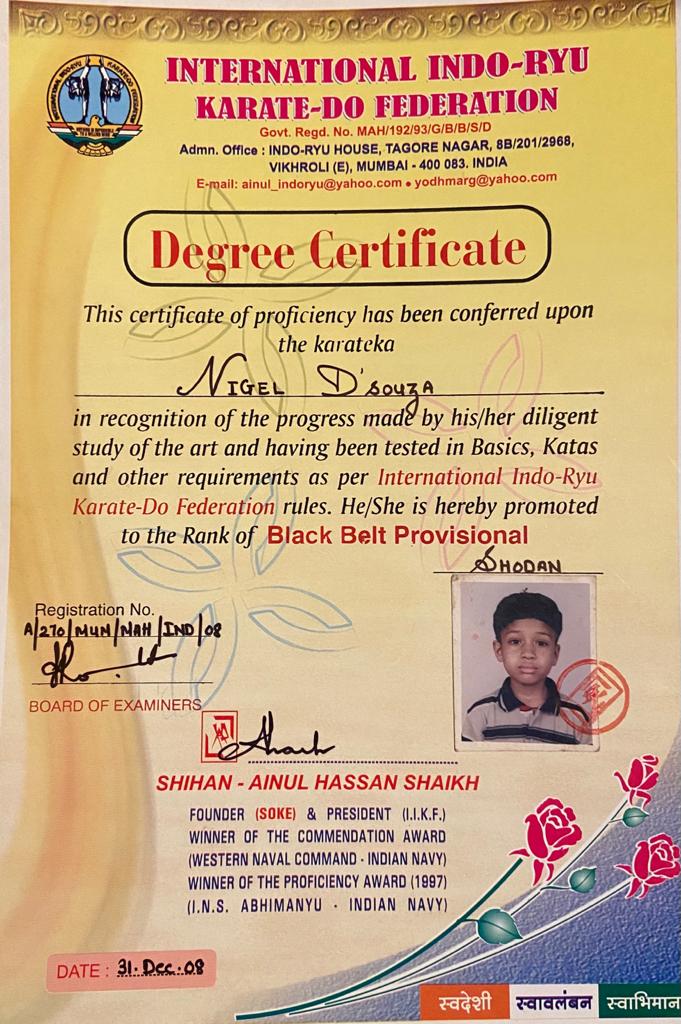 INTERNATIONAL INDO-RYU
KARATE-DO FEDERATION
Govt. Regd. No. MAH/192/93/G/B/B/S/D
Admn. Office : INDO-RYU HOUSE, TAGORE NAGAR, 8B/201/2968,
VIKHROLI (E), MUMBAI - 400 083. INDIA
E-mail: ainul_indoryu@yahoo.com • yodhmarg@yahoo.com
Degree Certificate
This certificate of proficiency has been conferred upon
the karateka
NIGEL D'SOUZA
in recognition of the progress made by his/her diligent
study of the art and having been tested in Basics, Katas
and other requirements as per International Indo-Ryu
Karate-Do Federation rules. He/She is hereby promoted
to the Rank of Black Belt Provisional
SHODAN
Registration No.
A/270/MUM/MAH/IND/08
BOARD OF EXAMINERS
SHIHAN - AINUL HASSAN SHAIKH
FOUNDER (SOKE) & PRESIDENT (I.I.K.F.)
WINNER OF THE COMMENDATION AWARD
(WESTERN NAVAL COMMAND - INDIAN NAVY)
WINNER OF THE PROFICIENCY AWARD (1997)
(I.N.S. ABHIMANYU - INDIAN NAVY)
DATE : 31. Dec. 08
स्वदेशी स्वावलंबन स्वाभिमान